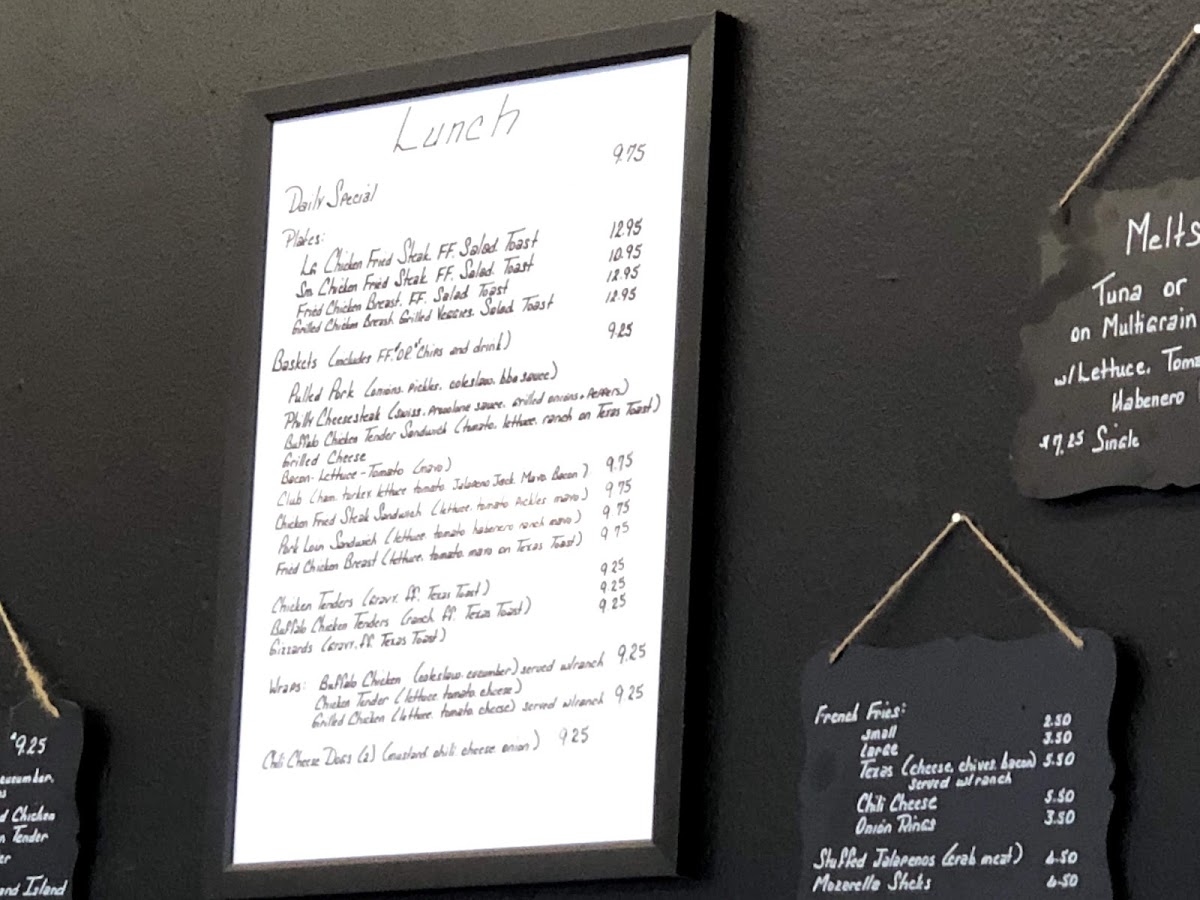 Lunch
9.75
Daily Special
Plates:
LG Chicken Fried Steak. FF. Salad. Toast 12.95
Sm. Chicken Fried Steak. FF. Salad. Toast 10.95
Fried Chicken Breast. FF. Salad Toast 12.95
Grilled Chicken Breast. Grilled Veggies. Salad Toast 12.95
Baskets (includes FF "OR" Chips and drink) 9.25
Pulled Pork (onions. pickles. coleslaw. bbq sauce)
Philly Cheesesteak (swiss. provolone sauce. grilled onions + peppers)
Buffalo Chicken Tender Sandwich (tomato. lettuce. ranch on Texas Toast)
Grilled Cheese
Bacon-Lettuce-Tomato (mayo)
Club (ham. turkey. lettuce tomato. Jalapeno Jack. Mayo. Bacon) 9.75
Chicken Fried Steak Sandwich (lettuce. tomato pickles mayo) 9.75
Pork Loin Sandwich (lettuce. tomato habenero ranch mayo) 9.75
Fried Chicken Breast (lettuce. tomato. mayo on Texas Toast) 9.75
Chicken Tenders (gravy. ff. Texas Toast) 9.25
Buffalo Chicken Tenders (ranch. ff. Texas Toast) 9.25
Gizzards (gravy. ff. Texas Toast) 9.25
Wraps: Buffalo Chicken (coleslaw. cucumber) served w/ranch 9.25
Chicken Tender (lettuce tomato. cheese)
Grilled Chicken (lettuce. tomato. cheese) served w/ranch 9.25
Chili Cheese Dogs (2) (mustard. chili. cheese. onion) 9.25
Melts
Tuna or
on Multigrain
w/Lettuce. Toma
Habenero
$7.25 Single
French Fries:
small 2.50
large 3.50
Texas (cheese. chives. bacon) 5.50
served w/ranch
Chili Cheese 5.50
Onion Rings 3.50
Stuffed Jalapenos (crab meat) 6.50
Mozerella Sticks 6.50
$9.25
cucumber.
d Chicken
n Tender
er
and Island